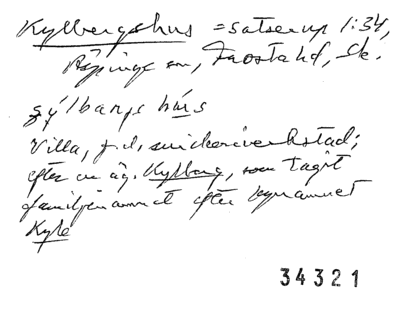 Kylbergshus = satserup 1:34,
Röpinge sn, Frosta hd, Sk.
çy̆lbarjs hús
Villa, f.d. snickeriverkstad;
efter en äg. Kylberg, som tagit
familjenamnet efter bynamnet
Kyle
34321